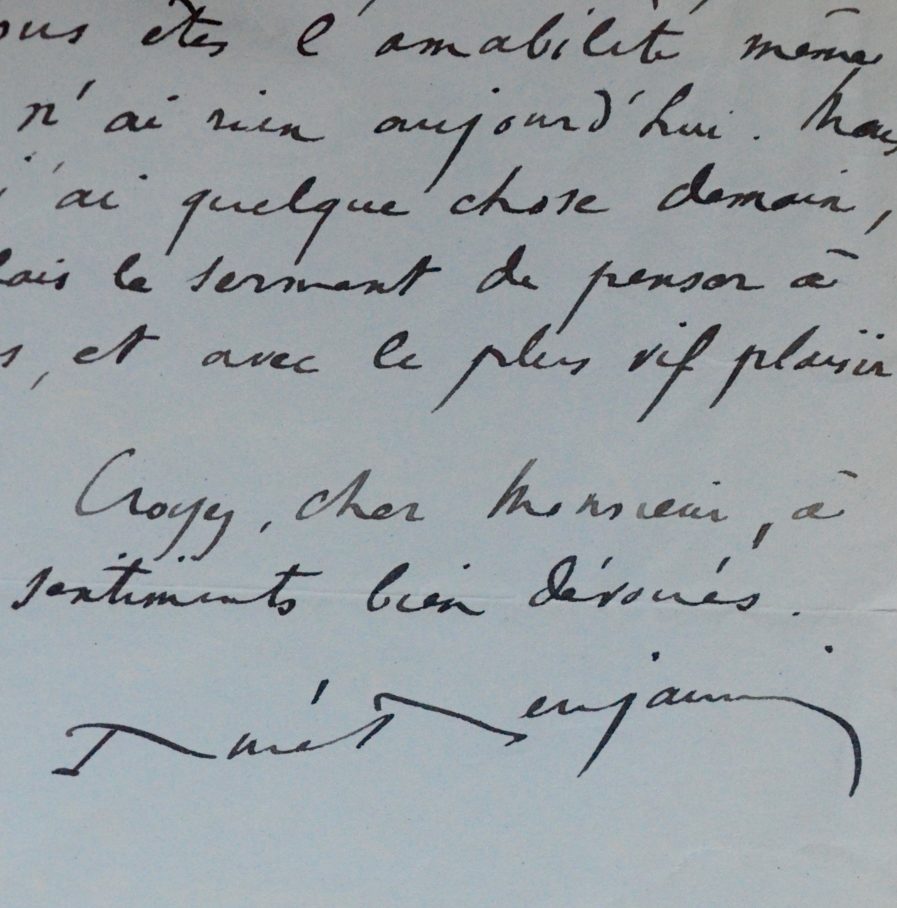 ous êtes l'amabilité même
n'ai rien aujourd'hui. Mais
j'ai quelque chose demain,
fais le serment de penser à
s, et avec le plus vif plaisir
Croyez, cher Monsieur, à
sentiments bien dévoués.
René Benjamin